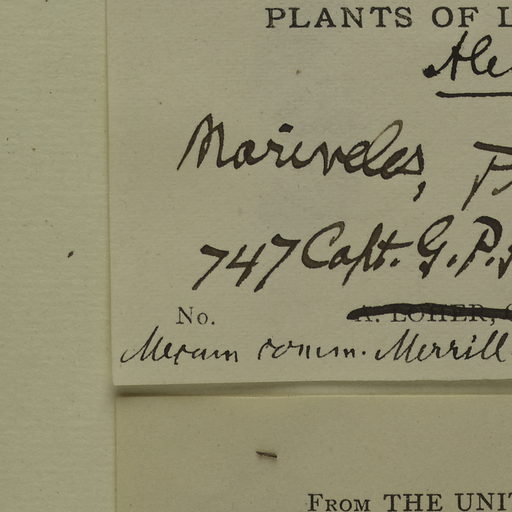 PLANTS OF L
Ale
Mariveles, P
747 Capt. G. P.
No. A. LOHER,
Mecum comm. Merrill
FROM THE UNIT